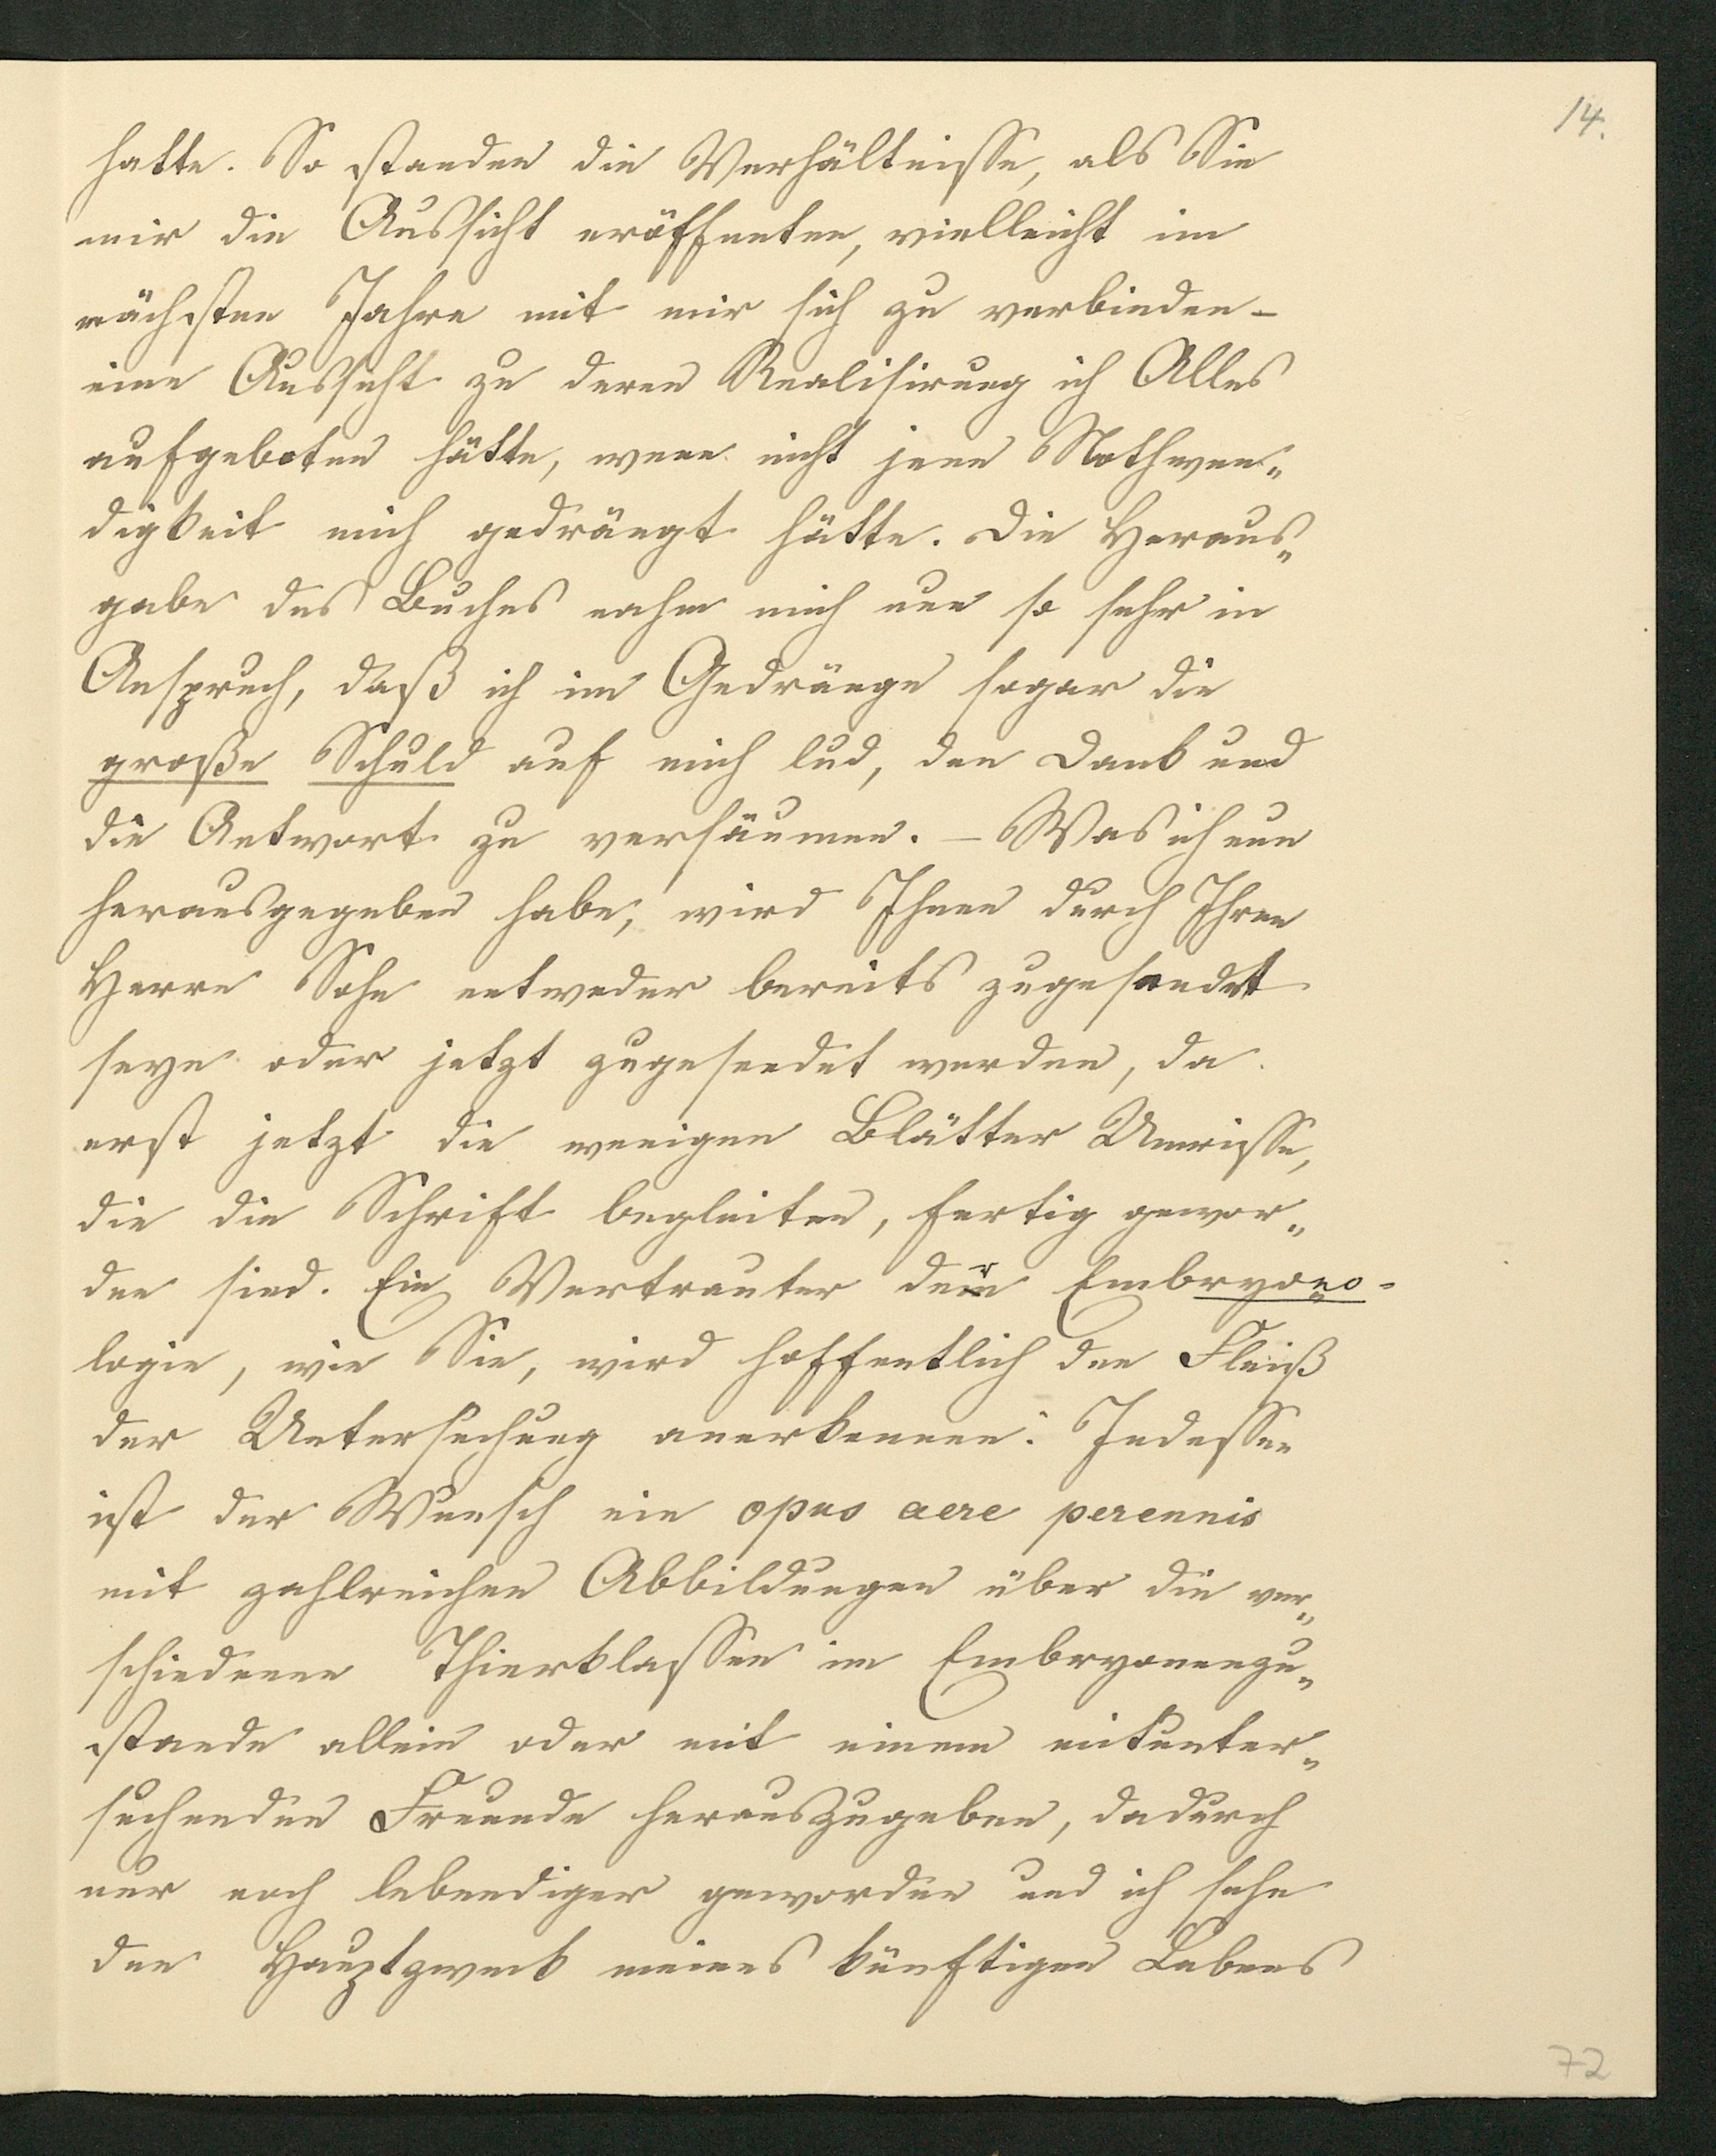 14.
hatte. So standen die Verhältnisse, als Sie
mir die Aussicht eröffneten, vielleicht im
nächsten Jahre mit mir sich zu verbinden –
eine Aussicht zu deren Realisirung ich Alles
aufgeboten hätte, wenn nicht jene Nothwen„
digkeit mich gedrängt hätte. Die Heraus„
gabe des Buches nahm mich nun so sehr in
Anspruch, daß ich im Gedränge sogar die
große Schuld auf mich lud, den Dank und
die Antwort zu versäumen. – Was ich nun
herausgegeben habe, wird Ihnen durch Ihren
Herrn Sohn entweder bereits zugesendet
seyn oder jetzt zugesendet werden, da
erst jetzt die wenigen Blätter Umrisse,
die die Schrift begleiten, fertig gewor„
den sind. Ein Vertrauter der Embryono-
logie, wie Sie, wird hoffentlich den Fleiß
der Untersuchung anerkennen. Indessen
ist der Wunsch ein opus aere perennis
mit zahlreichen Abbildungen über die ver„
schiedenen Thierklassen im Embryonenzu„
stande allein oder mit einem mitunter„
suchenden Freunde herauszugeben, dadurch
nur noch lebendiger geworden und ich sehe
den Hauptzweck meines künftigen Lebens
72